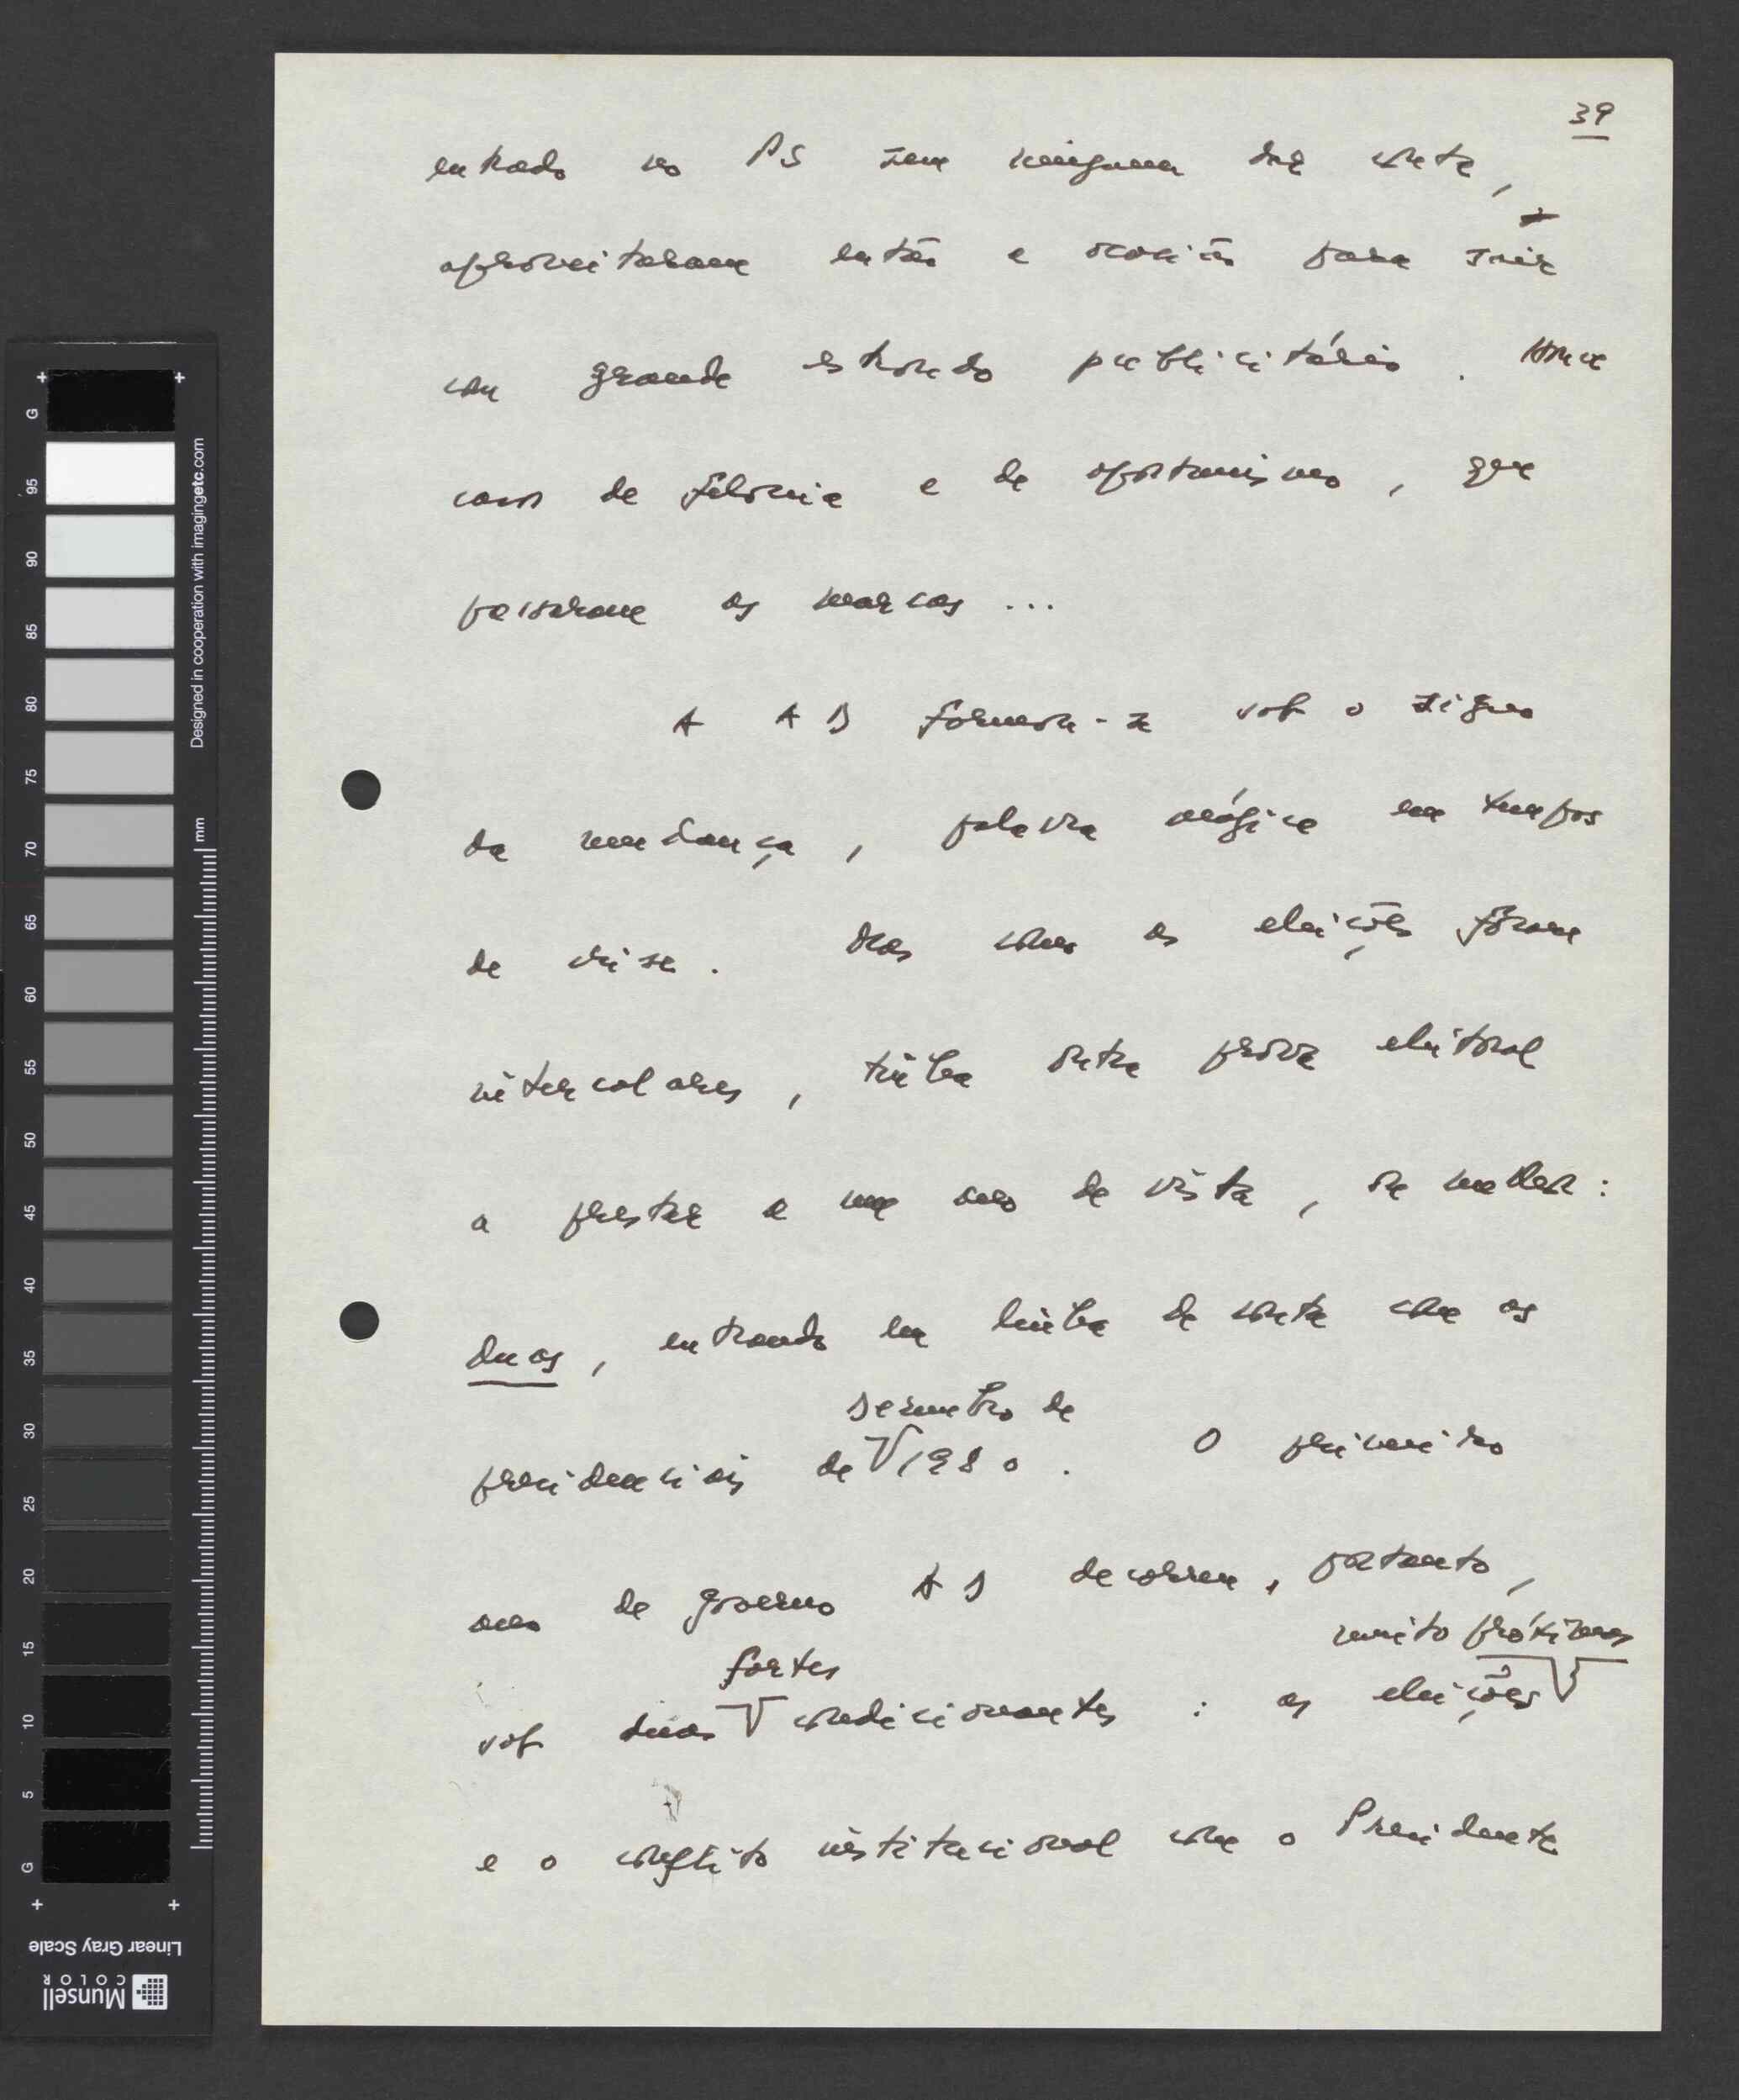 39
entrado no PS sem ninguém dar conta,
aproveitaram então a ocasião para sair
com grande estrondo publicitário. Houve
casos de felonia e de oportunismo, que
passaram as marcas...
A AD formou-se sob o signo
da mudança, palavra mágica em tempos
de crise. Mas como as eleições fôram
intercalares, tinha outra prova eleitoral
a prestar a um ano de vista, ou melhor:
duas, entrando em linha de conta com as
dezembro de
presidenciais de 1980. O primeiro
ano de governo AD decorreu, portanto,
muito próximas
fortes
sob duas condicionantes: as eleições
e o conflito institucional com o Presidente
G 95 90 85 80 75 70 65 60 55 50 45 40 35 30 25 20 15 10 5 G
Designed in cooperation with imagingetc.com
mm
Linear Gray Scale
Munsell
COLOR